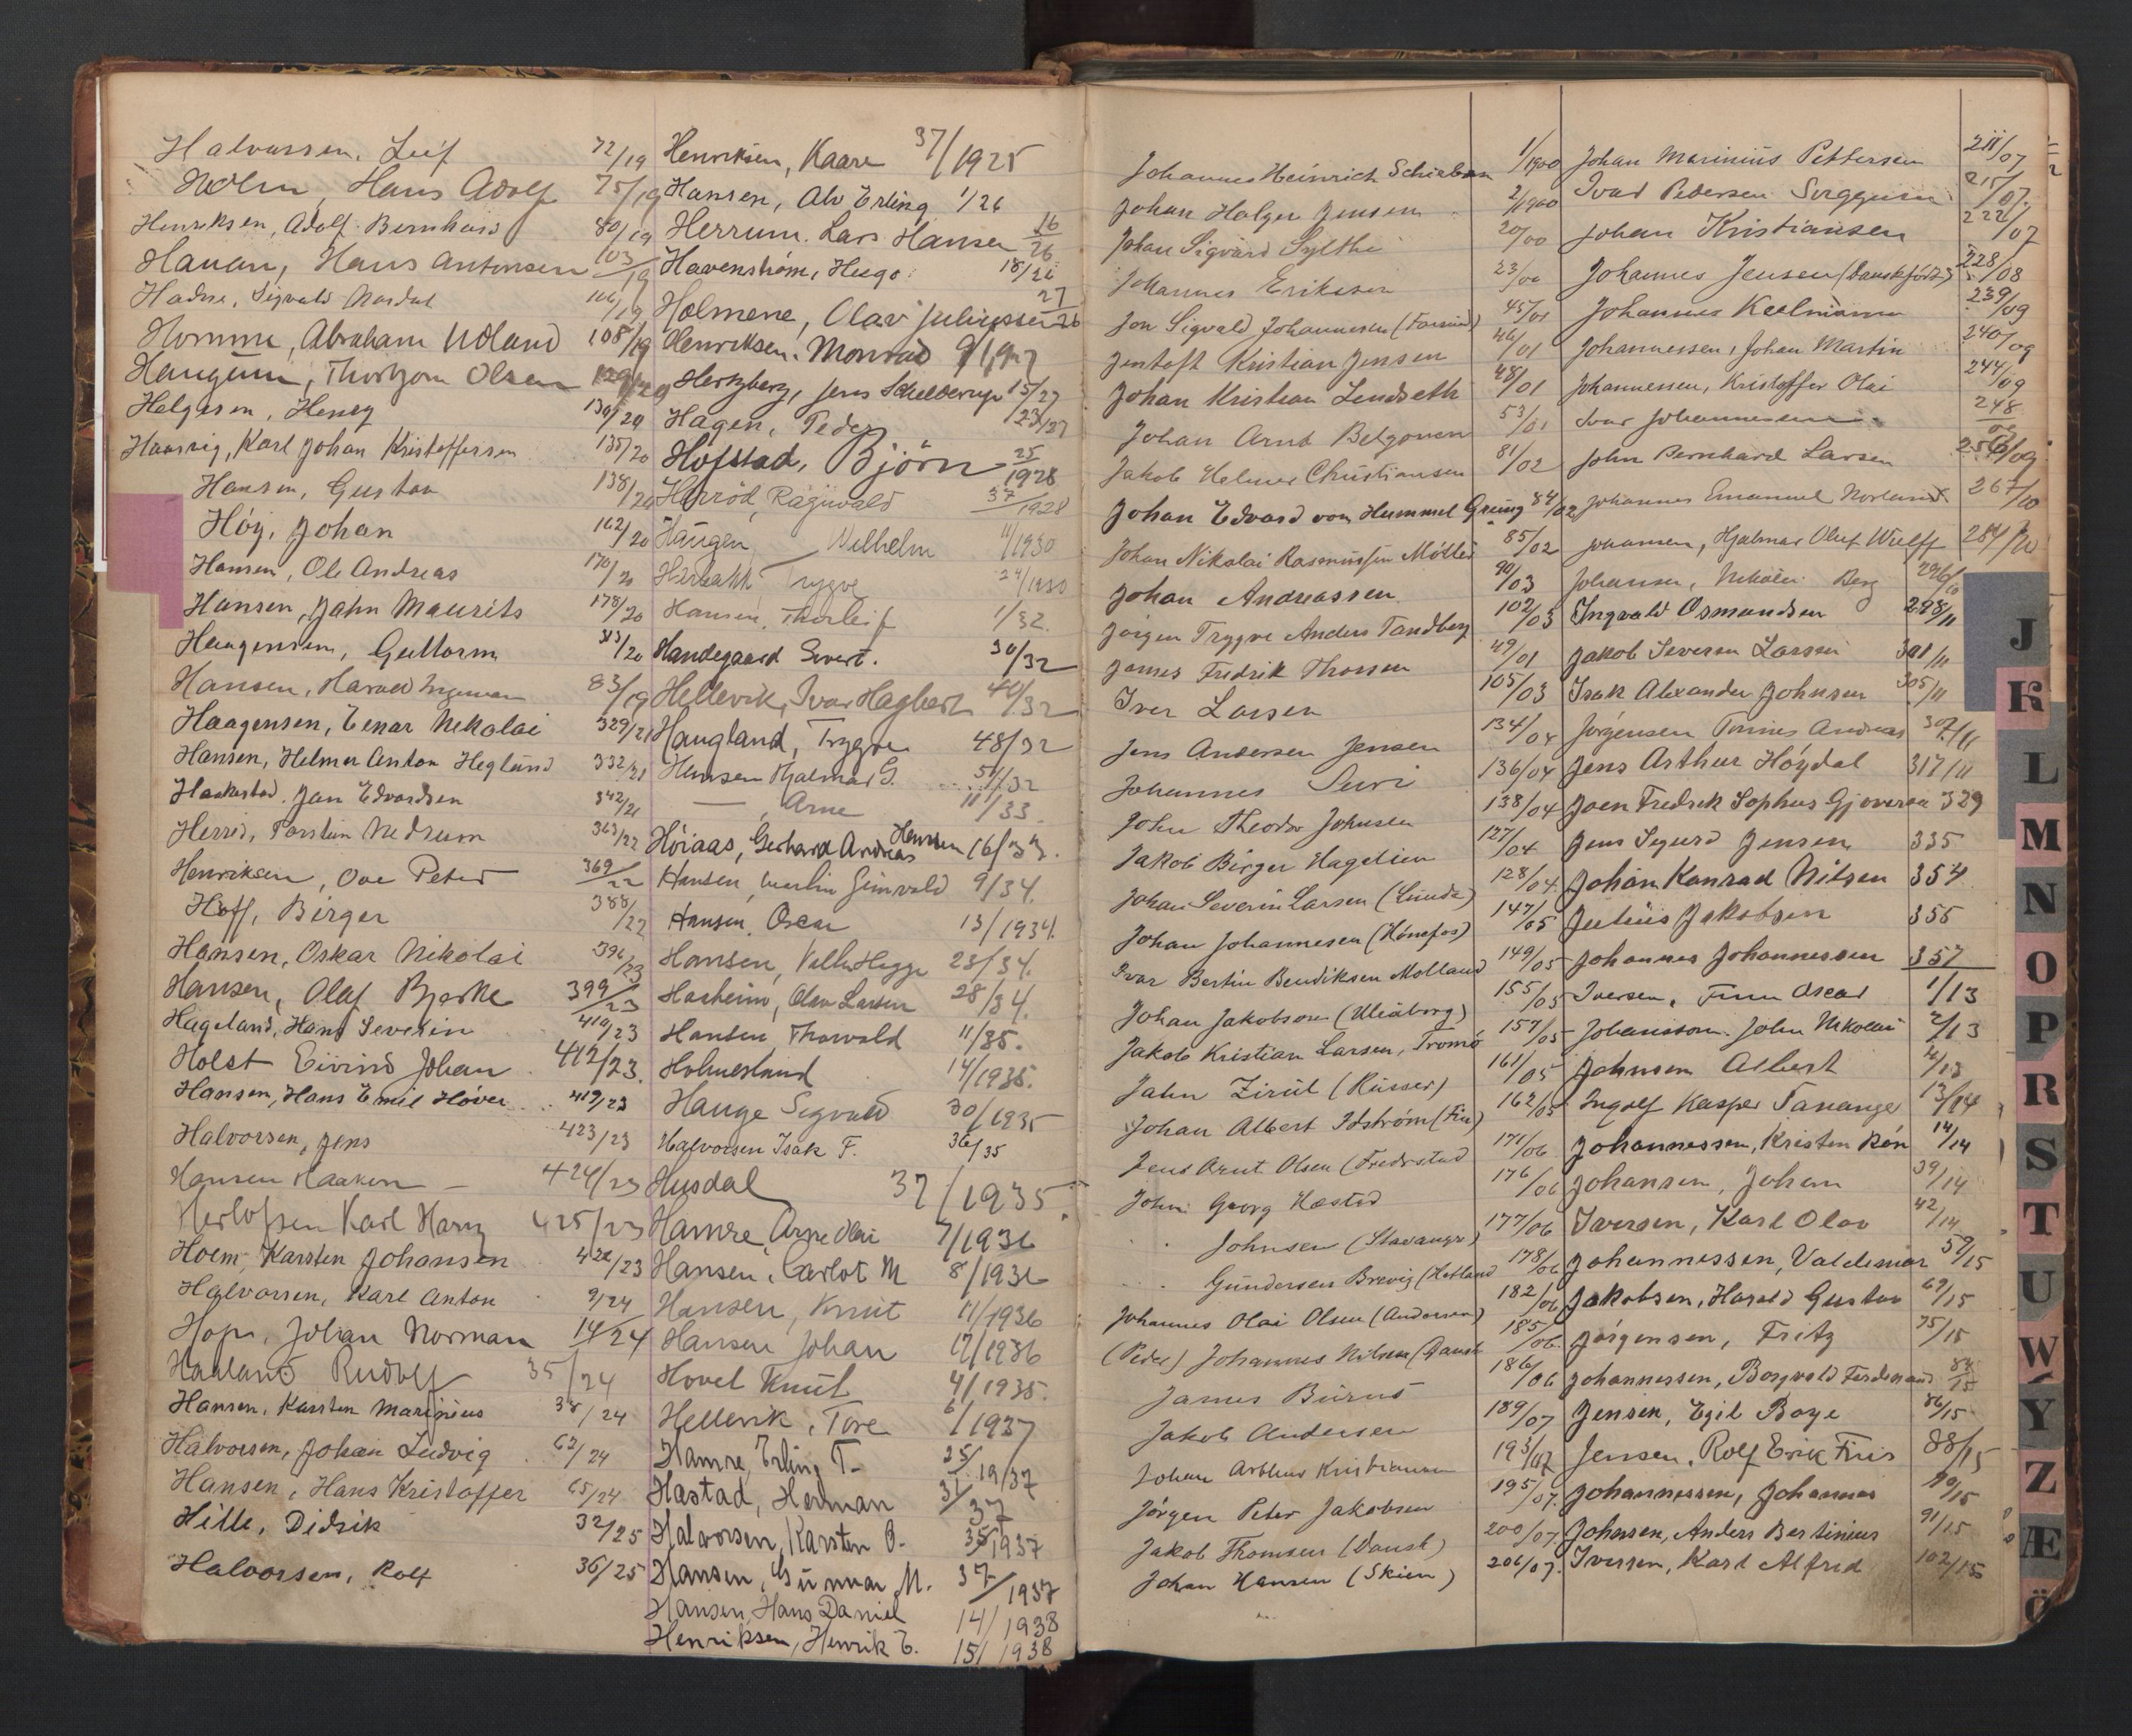 Halvorsen, Leif 72/19
Holm, Hans Adolf 75/19
Henriksen, Adolf Bernhard 80/19
Hauan, Hans Antonsen 103/19
Hadne, Sigvald Nordal 106/19
Homme, Abraham Udland 108/19
Haugum, Thorbjørn Olsen
Helgesen, Henry 130/20
Haarvig, Karl Johan Kristoffersen 135/20
Hansen, Gustav 138/20
Höy, Johan 162/20
Hansen, Ole Andreas 170/20
Hansen, Jahn Maurits 178/20
Haagensen, Guttorm 313/20
Hansen, Harald Ingeman 83/19
Haagensen, Einar Nikolai 329/21
Hansen, Helmer Anton Heglund 332/21
Haakestad, Jan Edvardsen 342/21
Herre, Torstein Nedrum 363/22
Henriksen, Ove Peter 369/22
Hoff, Birger 388/22
Hansen, Oskar Nikolai 396/23
Hansen, Olaf Bjerke 399/23
Hageland, Hans Severin 410/23
Holst Eivind Johan 412/23.
Hansen, Hans Emil Höver 419/23
Halvorsen, Jens 423/23
Hansen Haaken — 424/23
Herlofsen Karl Harry 425/23
Holm, Karsten Johansen 428/23
Halvorsen, Karl Anton 9/24
Hope, Johan Norman 14/24
Haaland Rudolf 35/24
Hansen, Karsten Marinius 38/24
Halvorsen, Johan Ludvig 62/24
Hansen, Hans Kristoffer 65/24
Hille, Didrik 32/25
Halvorsen, Rolf 36/25
Henriksen, Kaare 37/1925
Hansen, Alv Erling 1/26
Herrum, Lars Hansen 16/26
Havenstrøm, Hugo 18/26
Holmene, Olav Juliussen 27/26
Henriksen, Monrad 9/1927
Hertzberg, Jens Schelderup 15/27
Hagen, Peder 23/27
Hofstad, Björn 25/1928
Herröd, Ragnvald 37/1928
Haugen, Vilhelm 11/1930
Trygve 24/1930
Hansen, Thorleif 1/32.
Handegaard Sivert. 30/32
Hellevik, Ivar Hagbert 40/32
Haugland, Trygve 48/32
Hansen Hjalmar G. 51/32
— , Arne 11/33.
Höiaas, Gerhard Andreas Hansen 16/33.
Hansen, Gunvald 9/34.
Hansen, Oscar 13/1934.
Hansen, Valle Hegge 23/34.
Hasheim, Olav Larsen 28/34.
Hansen, Thorvald 11/35.
Holmesland 14/1935.
Hauge Sigvald 30/1935
Halvorsen Isak F. 36/35
Husdal 37/1935.
Hamre, Arne Olai 7/1936
Hansen, Carlot M 8/1936
Hansen, Knut 11/1936
Hansen Johan 17/1936
Hovet Knut 4/1935.
Hellevik, Tore 6/1937
Hamre, Erling T. 25/1937
Hastad, Herman 31/37
Halvorsen, Karsten O. 35/1937
Hansen, Gunnar M. 37/1937
Hansen, Hans Daniel 14/1938
Henriksen, Henrik E. 15/1938
Johannes Heinrich 1/1900
Johan Holger Jensen 2/1900
Johan Sigvard Sylthe 20/00
Johannes Eriksen 23/00
Jon Sigvald Johannesen (Farsund) 45/01
Jentoft Kristian Jensen 46/01
Johan Kristian Lindseth 48/01
Johan Arnt Belgonen 53/01
Jakob Helmer Christiansen 81/02
Johan Edvard von Hummel Grüng 84/02
Johan Nikolai Rasmussen Möller 85/02
Johan Andreassen 90/03
Jörgen Trygve Anders Tandberg 102/03
James Fredrik Thorsen 49/01
Iver Larsen 105/03
Jens Andersen Jensen 134/04
Johannes Suvi 136/04
John Theodor Johnsen 138/04
Jakob Birger Hagelien 127/04
Johan Severin Larsen (Lunde) 128/04.
Johan Johannesen (Hönefos) 147/05
Ivar Bertin Bendiksen Molland 149/05
Johan Jakobson (Uleåborg) 155/05
Jakob Kristian Larsen, Tromö 157/05
Jahn Zirul (Russer) 161/05
Johan Albert Idström (Fin) 162/05
Jens Arnt Olsen (Fredrstad 171/06
John Georg Hasted 176/06
" Johnsen (Stavanger) 177/06
" Gundersen Brevig (Hetland 178/06
Johannes Olai Olsen (Andersen) 182/06
(Peder) Johannes Nilsen (Dansk 185/06.
James Burns 186/06
Jakob Andersen 189/07
Johan Arthur Kristiansen 193/07
Jörgen Peter Jakobsen 195/07.
Jakob Thomsen (Dansk) 200/07
Johan Hansen (Skien) 206/07.
Johan Marinius Pettersen 211/07
Ivar Pedersen 215/07.
Johan Kristiansen 222/07
Johannes Jensen (Danskfödt) 228/08
Johannes Keelmann 239/09
Johannessen, Johan Martin 240/09
Johannessen, Kristoffer Olai 244/09
Ivar Johannesen 248/09
John Bernhard Larsen 256/09
Johannes Emanuel Norland 267/10
Johansen, Hjalmar Oluf Wulff 284/10
Johansen, Nikolai Berg 296/10
Ingvald Osmundsen 298/11
Jakob Severin Larsen 301/11
Isak Alexander Johnsen 305/11
Jørgensen Tønnes Andreas 307/11
Jens Arthur Höydal 317/11
Joen Fredrik Sophus Gjoversen 329
Jens Sigurd Jensen 335
Johan Konrad Nilsen 354
Julius Jakobsen 355
Johannes Johannessen 357
Iversen, Finn Oscar 1/13
Johansson, John Nikolai 2/13
Johnsen Albert 4/13
Ingolf Kasper Tananger 13/14
Johannessen, Kristen Rön 14/14
Johansen, Johan 39/14
Iversen, Karl Olav 42/14
Johannessen, Valdemar 59/15
Jakobsen, Harald Gustav 69/15
Jörgensen, Fritz 75/15
Johannessen, Borgvald Ferdinand 84/15
Jensen, Egil Boye 86/15
Jensen, Rolf Erik Friis 88/15
Johannessen, Johannes 90/15
Johnsen, Anders Bertinius 91/15
Iversen, Karl Alfred 102/15
J
K
L
M
N
O
P
R
S
T
U
W
Y
Z
Æ
Ö